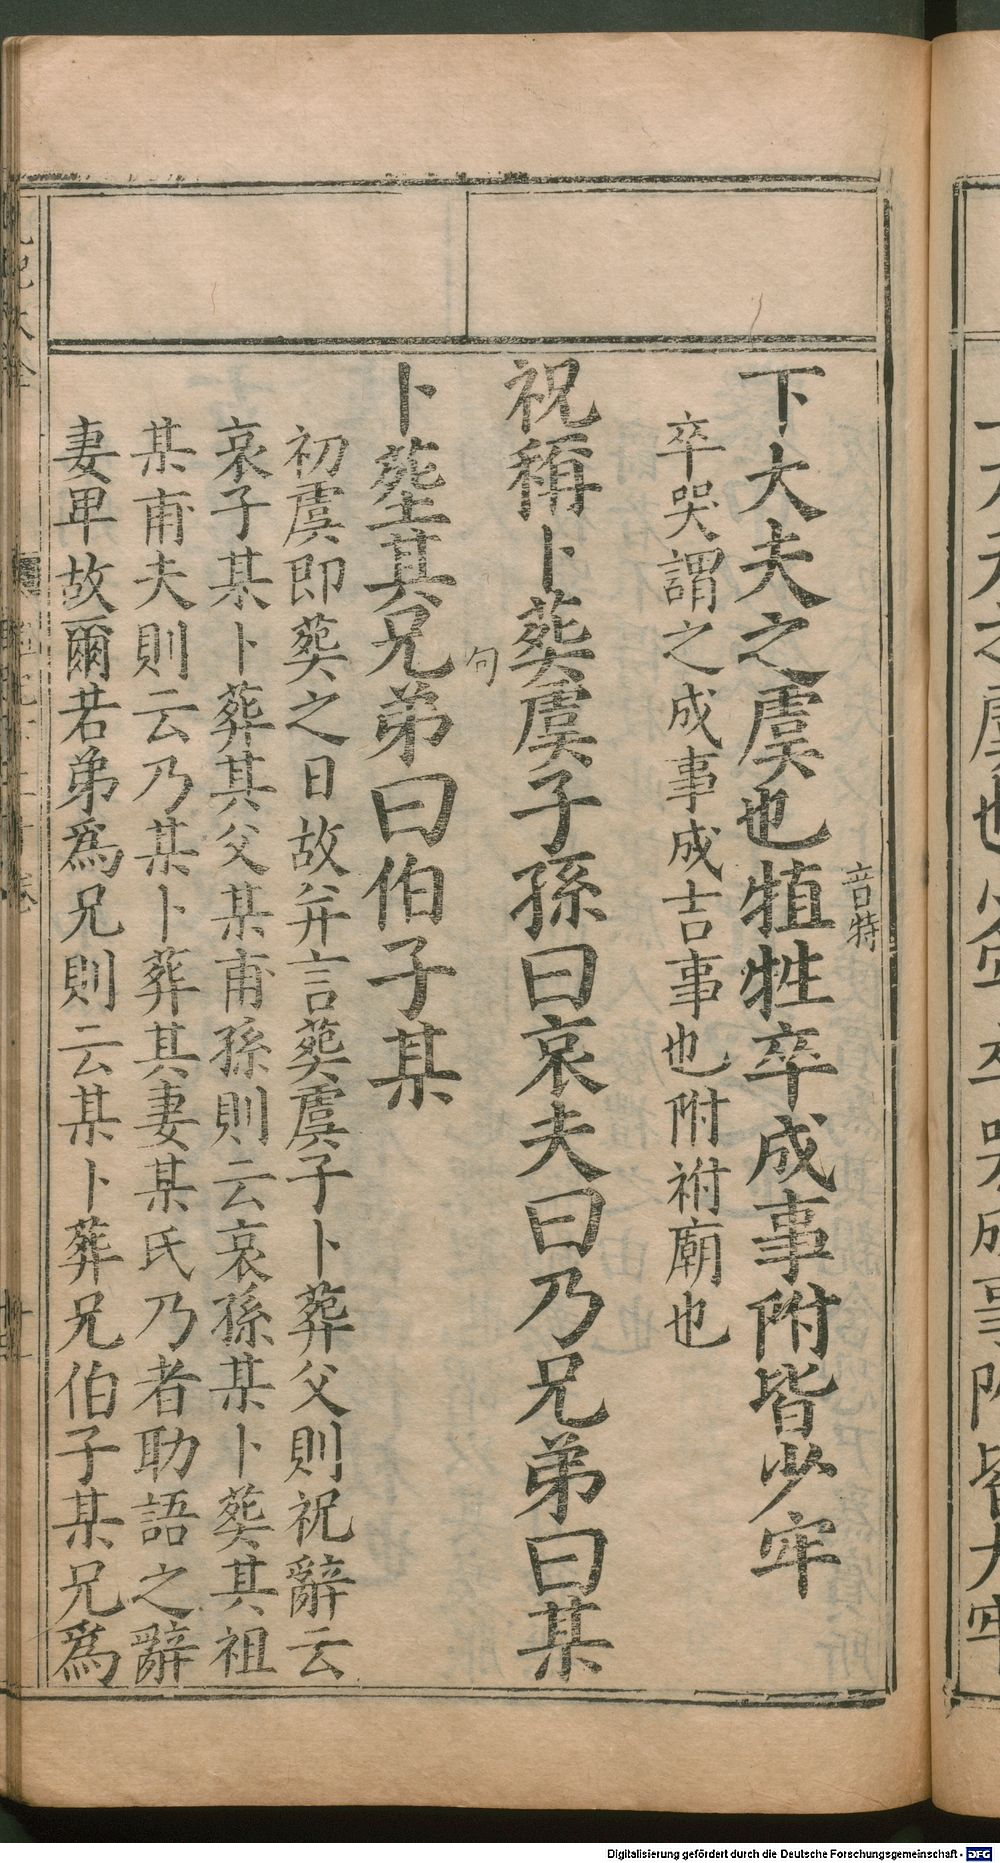 下大夫之虞也犆牲卒成事附皆少牢
音特
卒哭謂之成事成吉事也附祔廟也
祝稱卜葬虞子孫曰哀夫曰乃兄弟曰某
句
卜塟其兄弟曰伯子某
初虞即葬之日故并言葬虞子卜葬父則祝辭云
哀子某卜葬其父某甫孫則云哀孫某卜葬其祖
某甫夫則云乃某卜葬其妻某氏乃者助語之辭
妻卑故爾若弟為兄則云某卜葬兄伯子某兄為
Digitalisierung gefördert durch die Deutsche Forschungsgemeinschaft - DFG